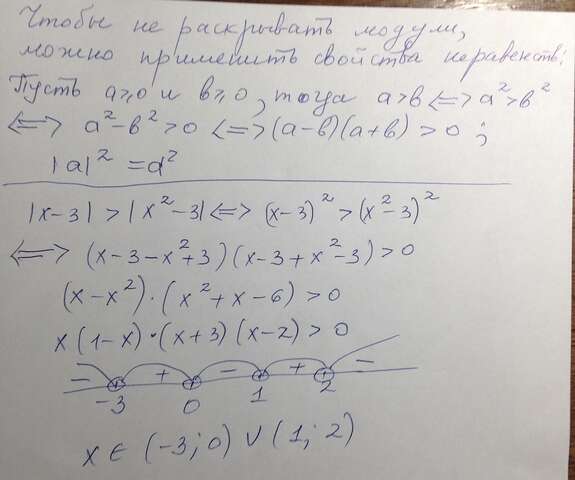 Чтобы не раскрывать модули,
можно применить свойства неравенств:
Пусть a⩾0 и b⩾0, тогда a>b <=> a²>b²
<=> a²-b²>0 <=> (a-b)(a+b)>0;
|a|²=a²
|x-3|>|x²-3| <=> (x-3)²>(x²-3)²
<=> (x-3-x²+3)(x-3+x²-3)>0
(x-x²)·(x²+x-6)>0
x(1-x)·(x+3)(x-2)>0
- + - + -
-3 0 1 2
x ∈ (-3;0) ∪ (1;2)